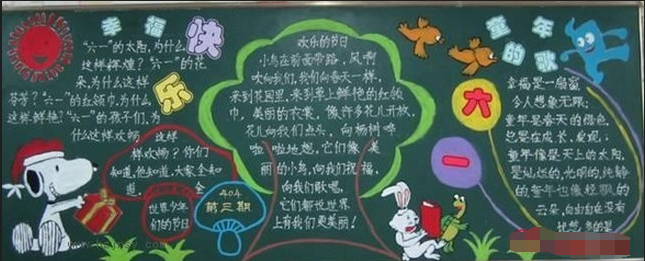 幸福快乐
"六一"的太阳,为什么
这样辉煌?"六一"的花
朵,为什么这样
芬芳?"六一"的红领巾,为什么
这样鲜艳?"六一"的孩子们,为
什么这样欢畅
这样
样欢畅?你们
知道,他知道,大家全知
道。
世界少年
们的节日
404
第三期
欢乐的节日
小鸟在前面带路,风啊
吹向我们,我们向春天一样,
来到花园里,来到草上鲜艳的红领
巾,美丽的衣裳,像许多花儿开放,
花儿向我们点头,向杨树哗
啦啦地想,它们像美
丽的小鸟,向我们祝福,
向我们歌唱,
它们都说世界
上有我们更美丽!
六一
童年的歌
幸福是一扇窗
令人想象无限;
童年是春天的绿色,
总要在成长、发现;
童年像是天上的太阳,
是灿烂的,光明的,纯静
的,童年也像轻飘的
云朵,自由自在没有